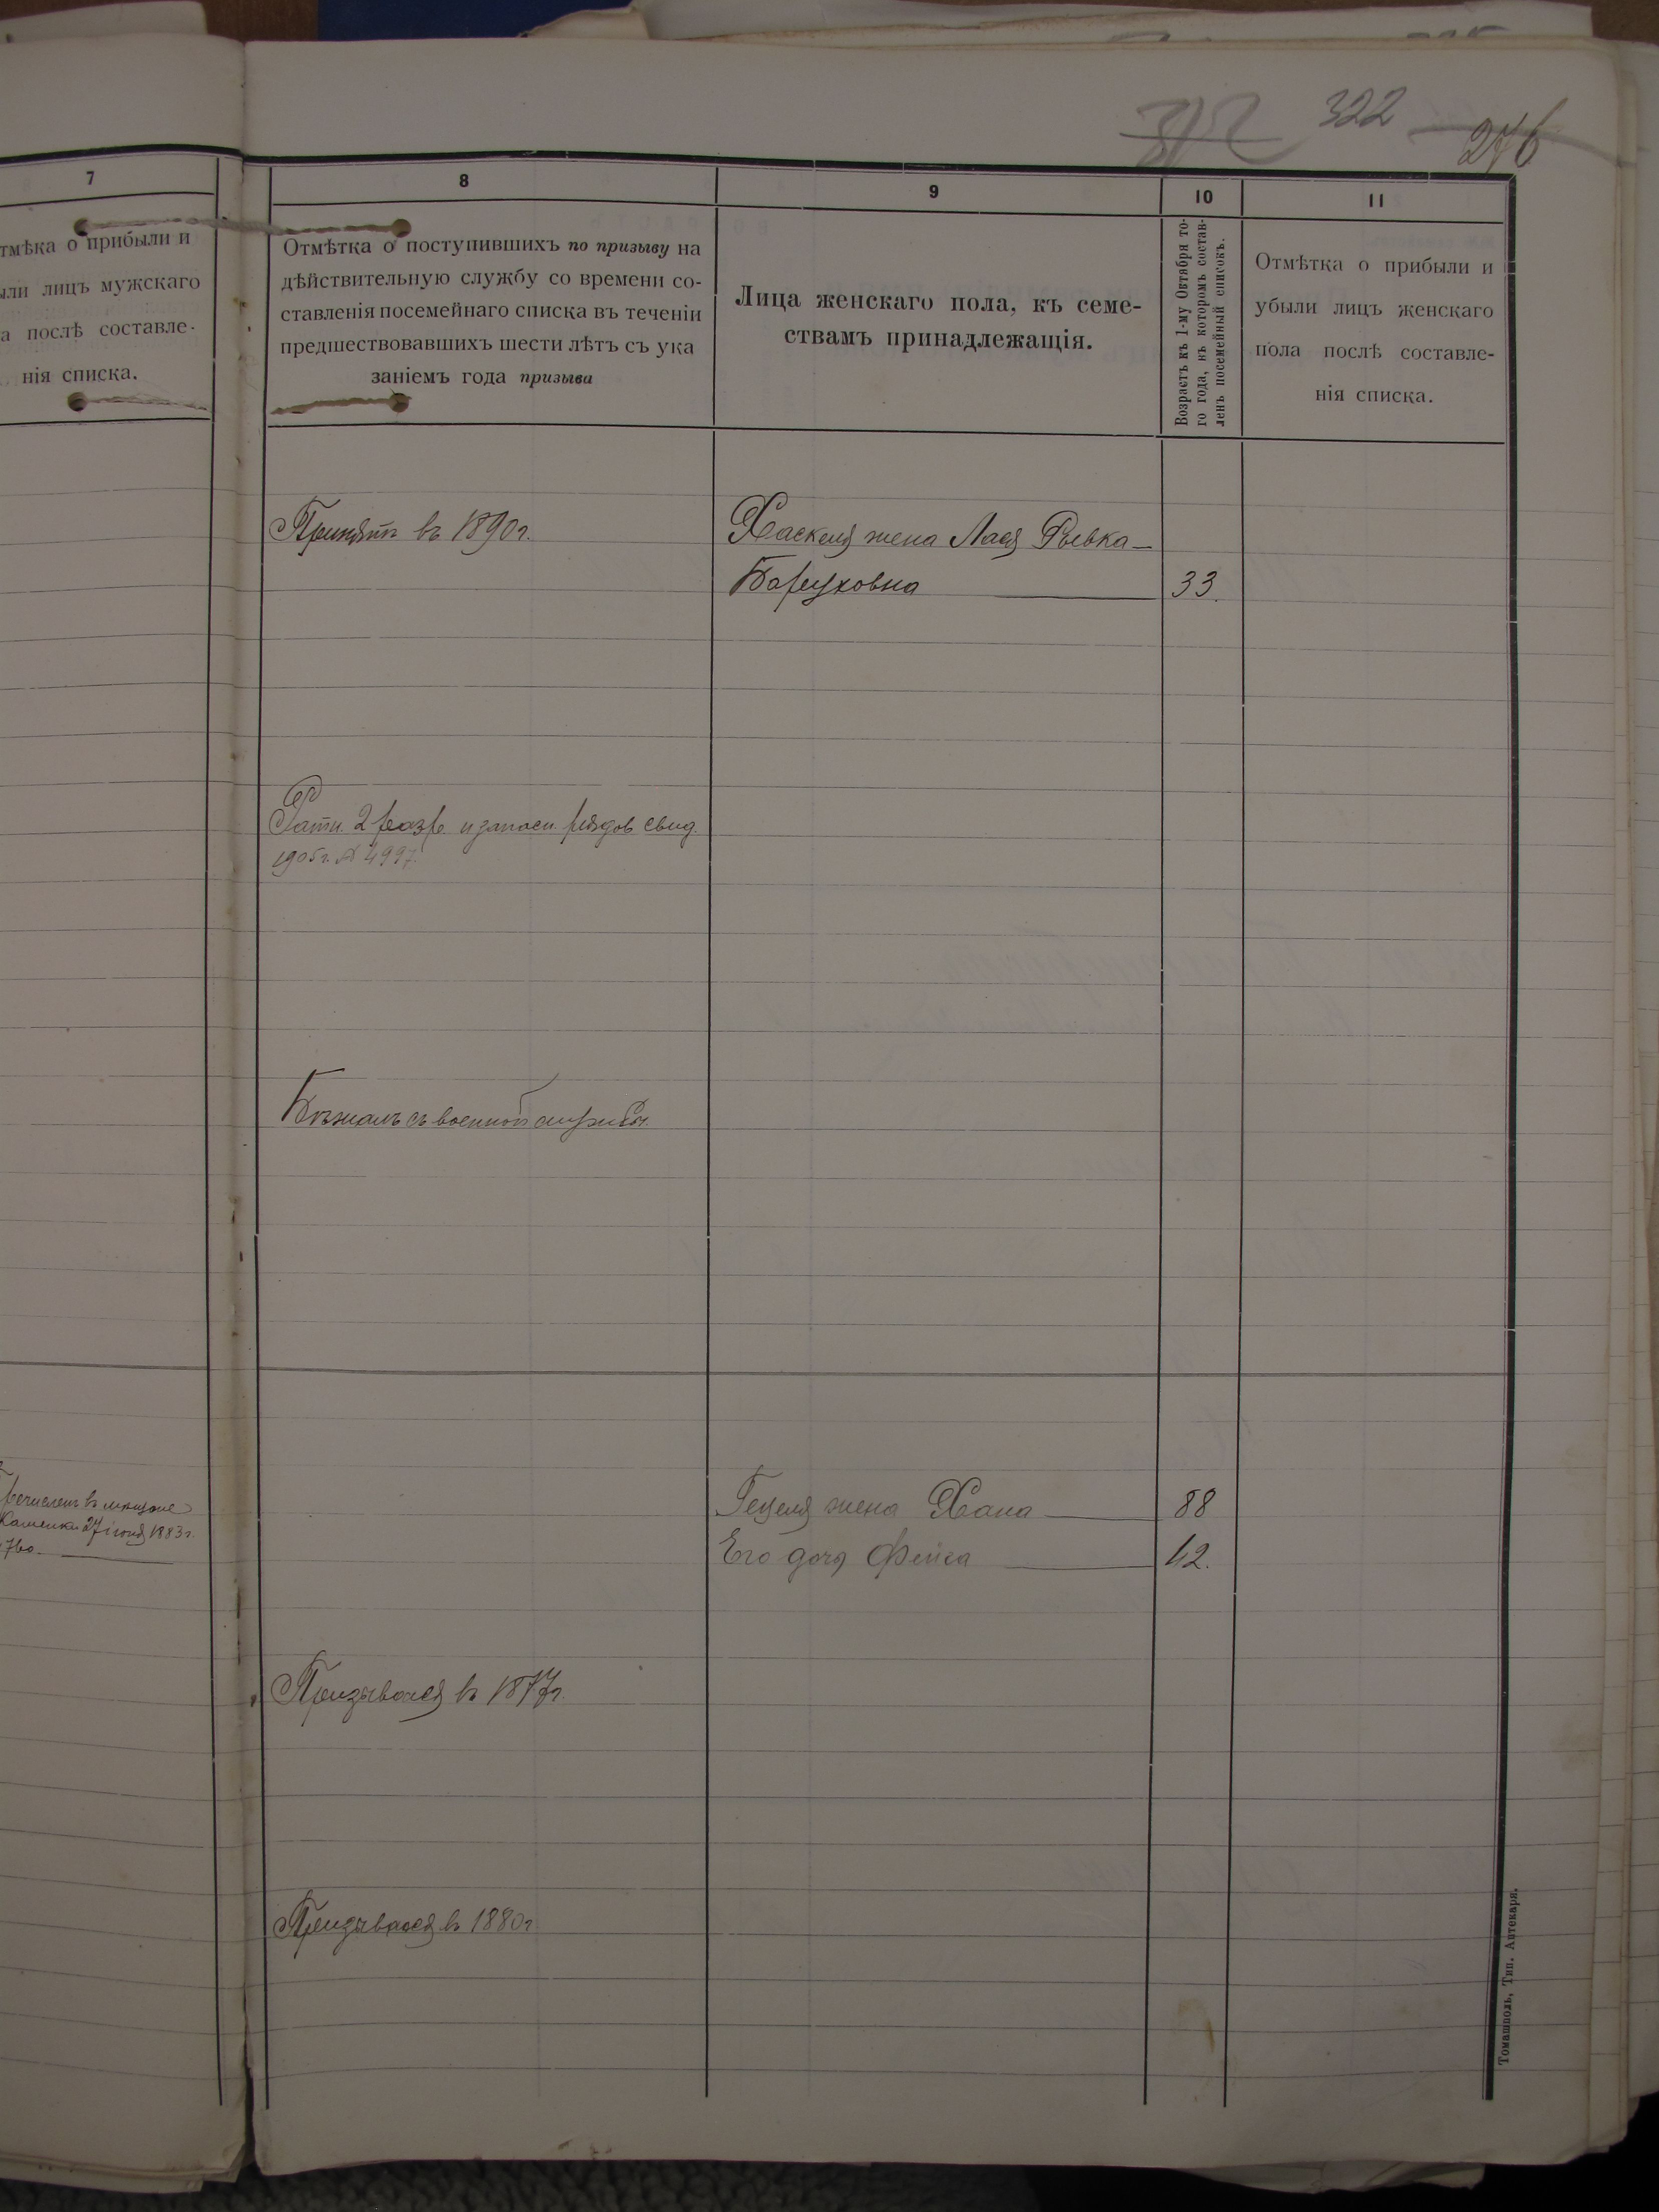 322
276
7
8
9
10
11
тмѣка о прибыли и
ыли лицъ мужскаго
а послѣ составле-
нія списка.
Отмѣтка о поступившихъ по призыву на
дѣйствительную службу со времени со-
ставленія посемейнаго списка въ теченіи
предшествовавшихъ шести лѣтъ съ ука
заніемъ года призыва
Лица женскаго пола, къ семе-
ствамъ принадлежащія.
Возрастъ къ 1-му Октября то-
го года, въ которомъ состав-
ленъ посемейный списокъ.
Отмѣтка о прибыли и
убыли лицъ женскаго
пола послѣ составле-
нія списка.
Принятъ въ 1890 г.
Хаскеля жена Лася Рывка-
Баруховна 33.
Ратн. 2 разр. и запасн. рядов. свид.
1905 г. № 4997.
Бѣжалъ съ военной службы.
Гецеля жена Хана 88
Его дочь Фейга 42.
27 іюня 1883 г.
Призывался въ 1877 г.
Призывался въ 1880 г.
Томашполь, Тип. Аптекаря.